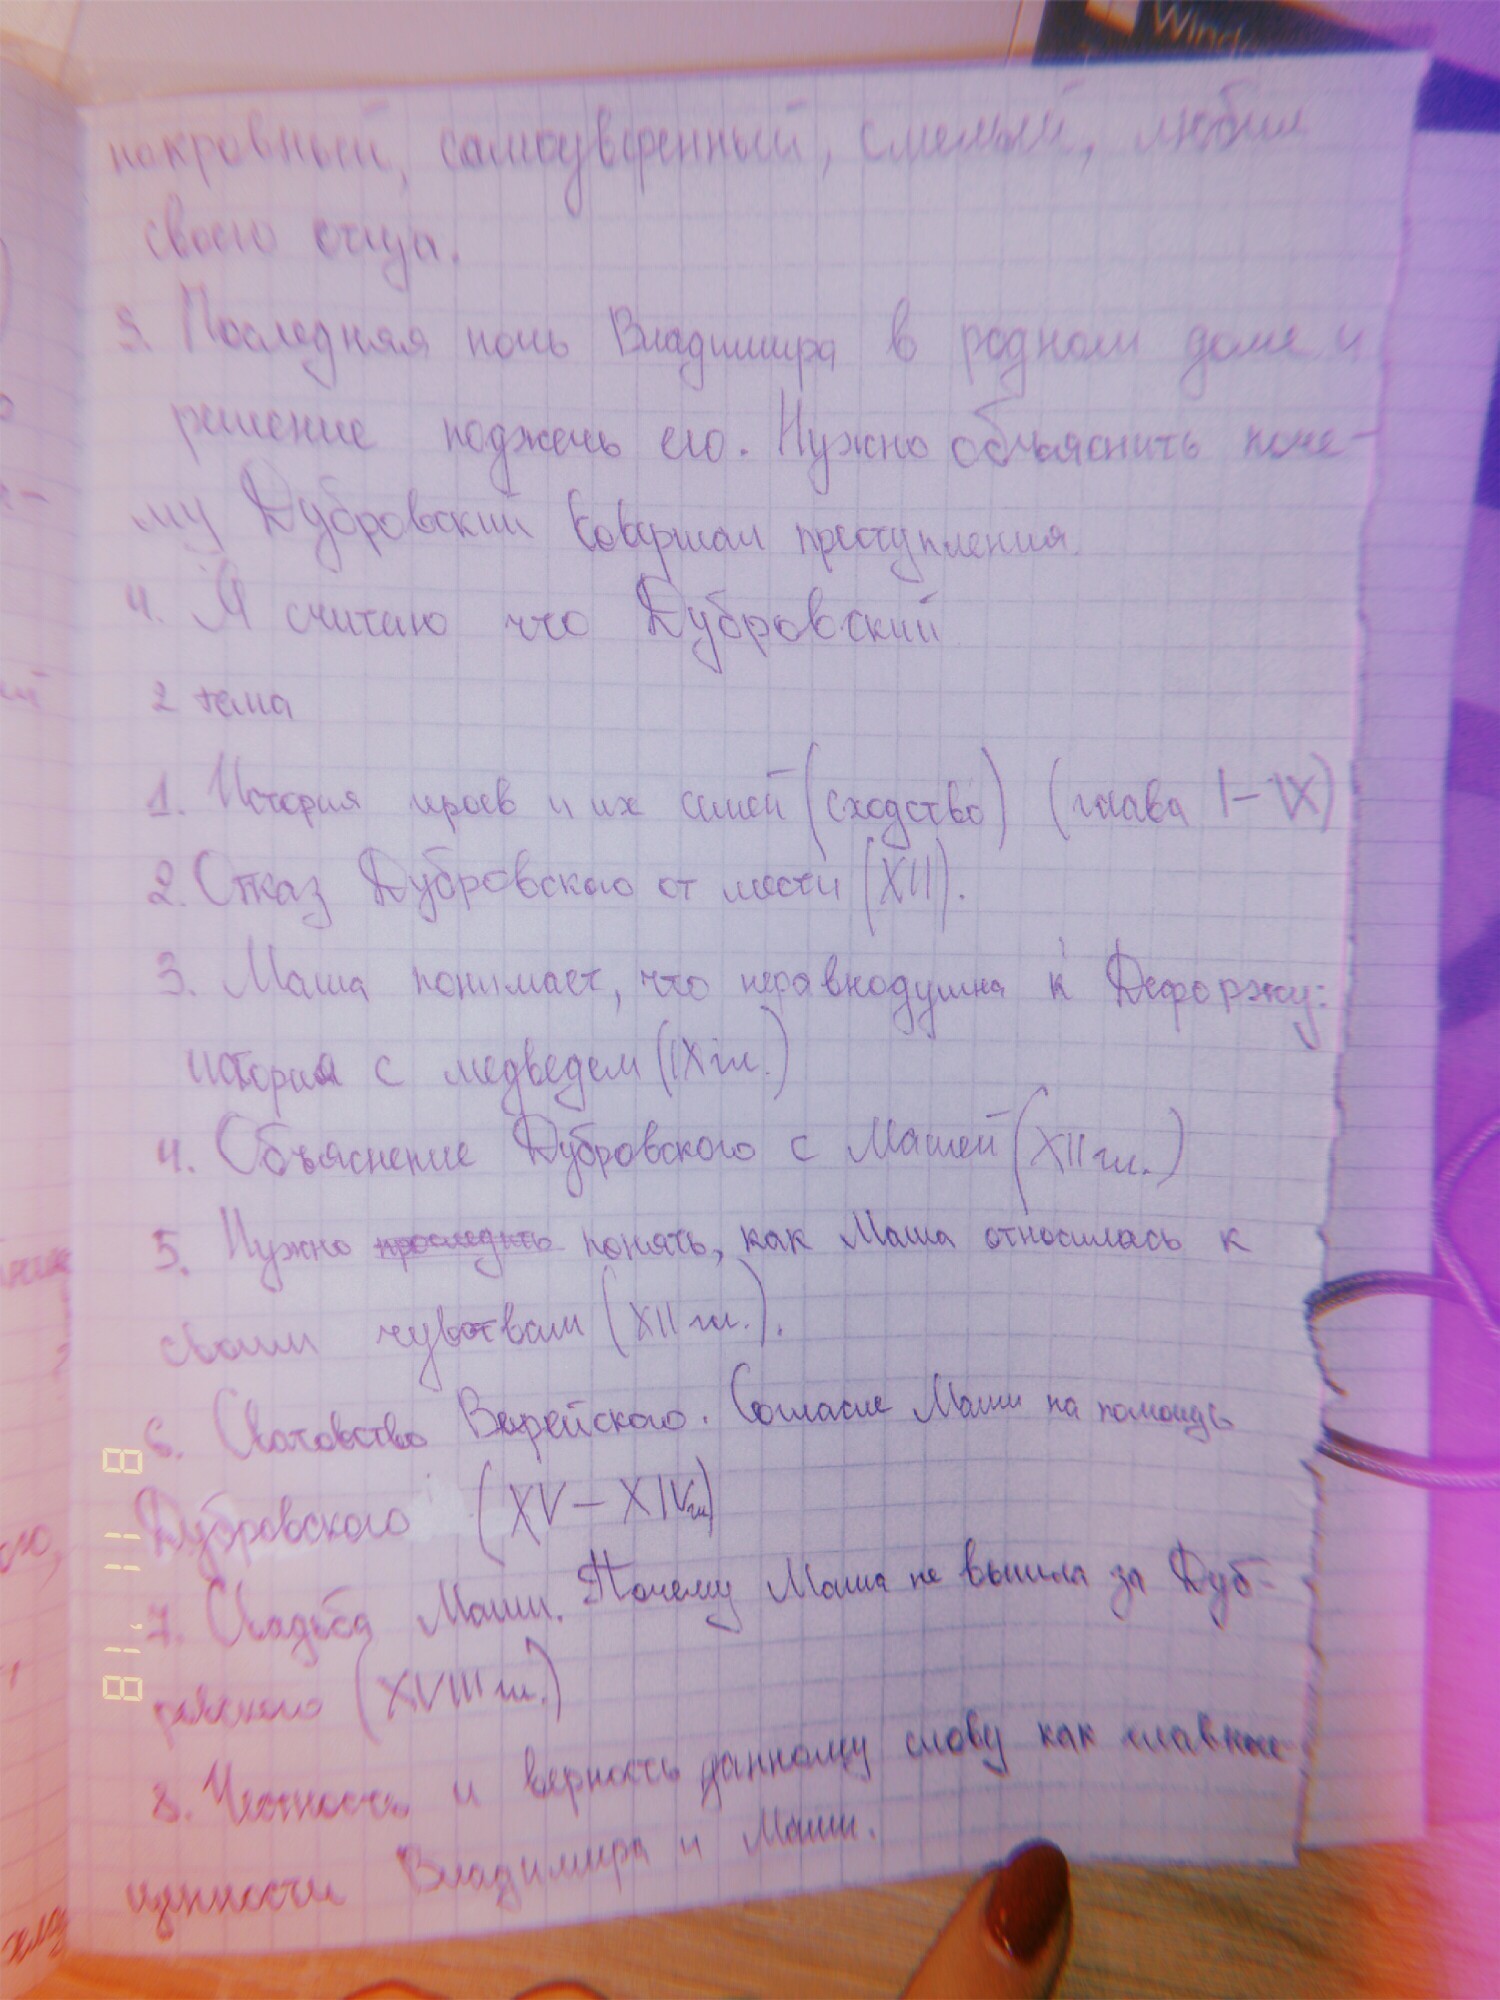 Windo
покровный, самоуверенный, смелый, любил
своего отца.
3. Последняя ночь Владимира в родном доме и
решение поджечь его. Нужно объяснить поче-
му Дубровский совершал преступления.
4. Я считаю что Дубровский
2 тема
1. История героев и их семей (сходство) (глава I-IX)
2. Отказ Дубровского от мести (XII).
3. Маша понимает, что неравнодушна к Дефоржу:
история с медведем (IX гл.)
4. Объяснение Дубровского с Машей (XII гл.)
5. Нужно проследить понять, как Маша относилась к
своим чувствам (XII гл.).
6. Сватовство Верейского. Согласие Маши на помощь
Дубровского (XV-XIV гл)
7. Свадьба Маши. Почему Маша не вышла за Дуб-
ровского (XVIII гл.)
8. Честность и верность данному слову как главные
ценности Владимира и Маши.
81, 11 8